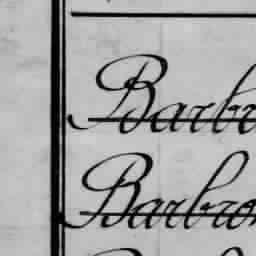 Barbr
Barbro